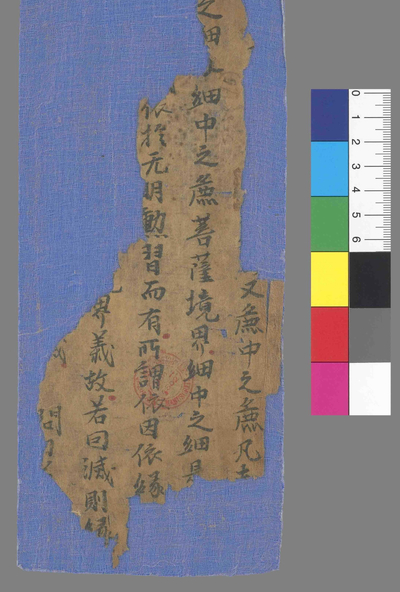 又麁中之麁凡
之細及細中之麁菩薩境界細中之細是
依於无明勲習而有所謂依因依緣
界義故若囙滅則緣
問曰